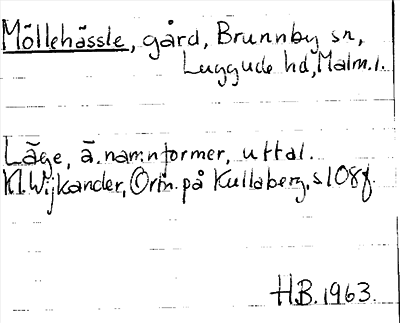 Möllehässle, gård, Brunnby sn,
Luggude hd, Malm.l.
Läge, ä. namnformer, uttal.
Kl. Wijkander, Ortn. på Kullaberg, s 108f.
H.B. 1963.